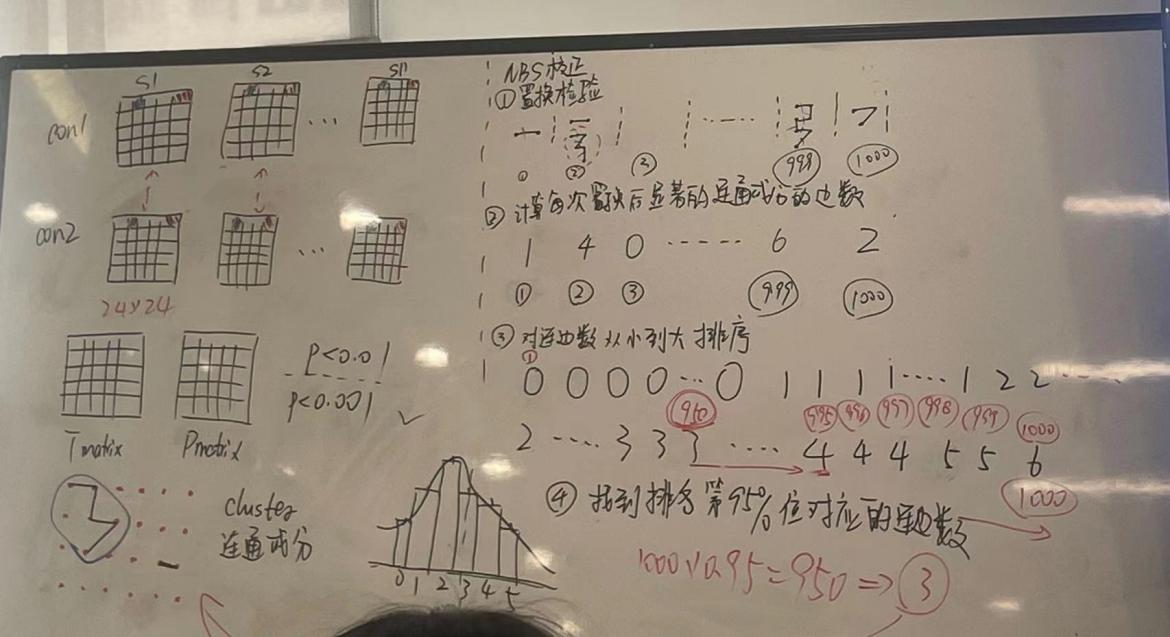 S1 S2 Sn
con1 ...
con2 ...
24×24
P<0.01
P<0.001 ✓
Tmatrix Pmatrix
cluster
连通成分
0 1 2 3 4 5
NBS校正
① 置换检验
......
① ② ③ 999 1000
② 计算每次置换后显著的连通成分的边数
1 4 0 ...... 6 2
① ② ③ 999 1000
③ 对连边数从小到大排序
①
0 0 0 0 ... 0 1 1 1 1 .... 1 2 2 ......
950 995 996 997 998 999 1000
2 .... 3 3 3 .... 4 4 4 5 5 6
1000
④ 找到排名第95%位对应的连边数
1000×0.95=950⇒3